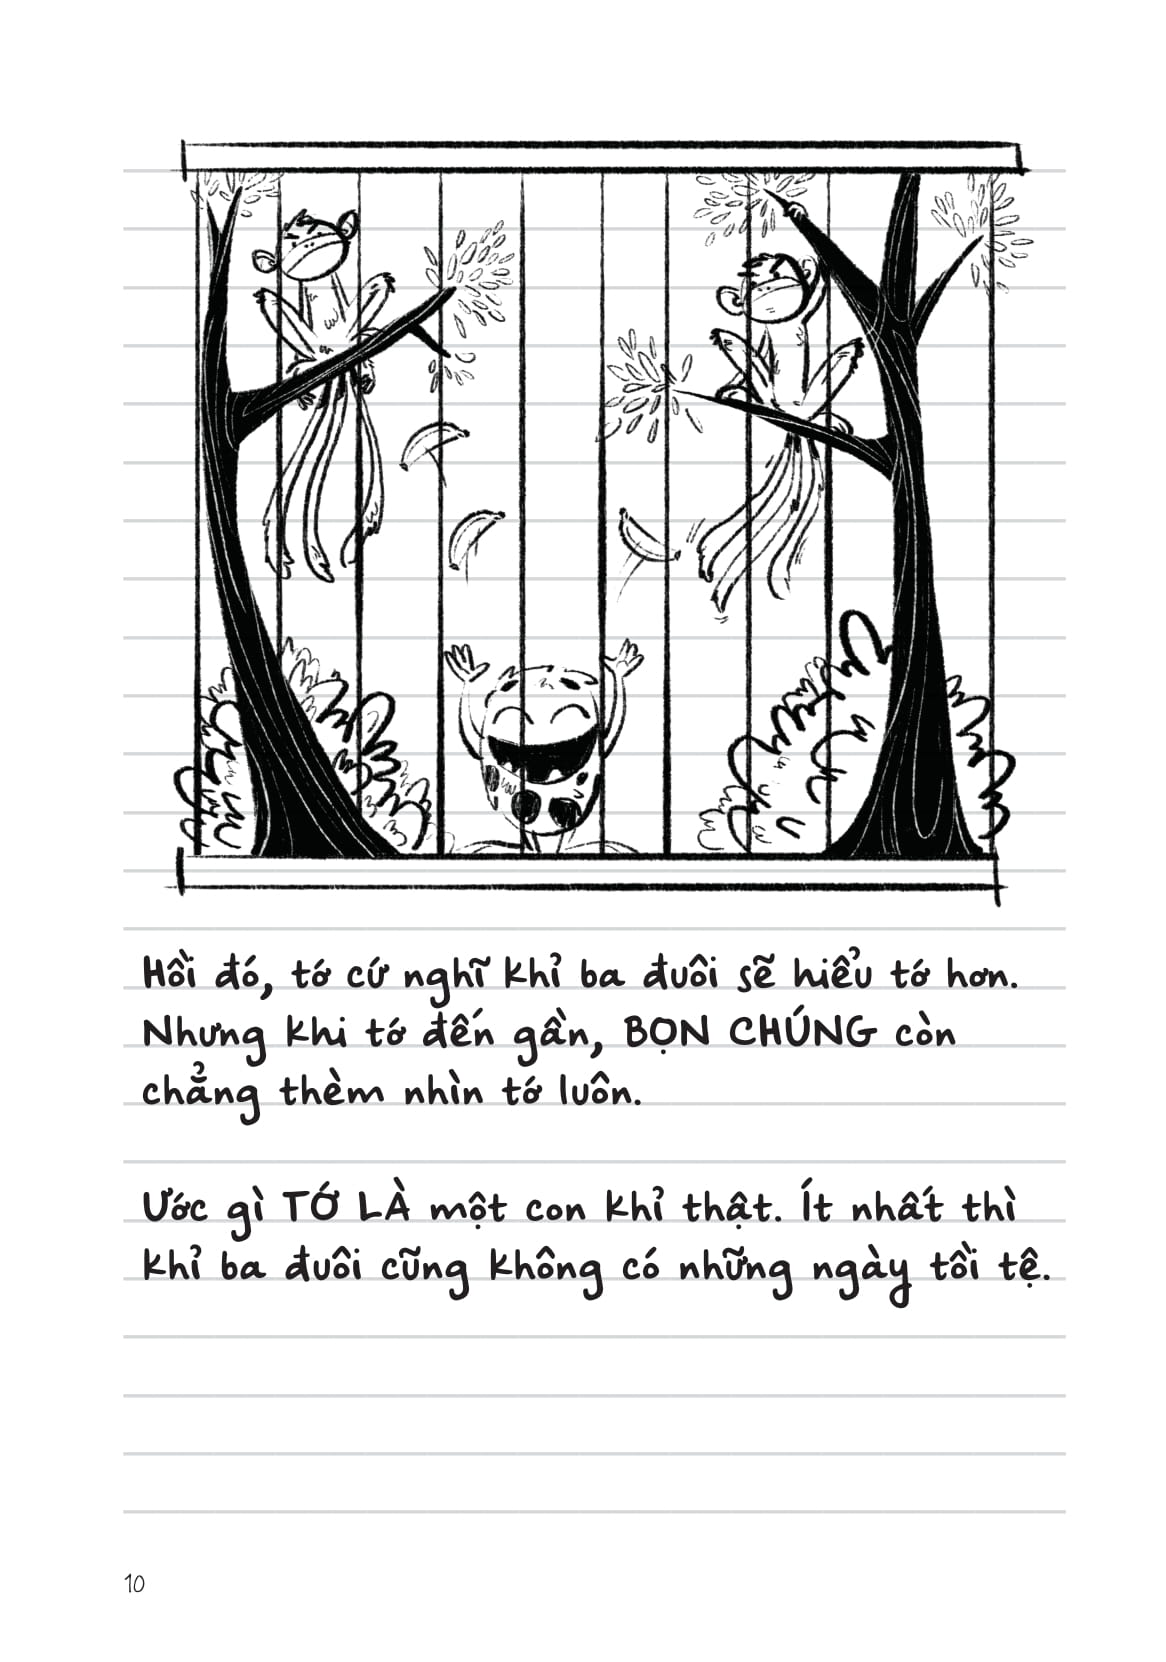 Hồi đó, tớ cứ nghĩ khỉ ba đuôi sẽ hiểu tớ hơn.
Nhưng khi tớ đến gần, BỌN CHÚNG còn
chẳng thèm nhìn tớ luôn.
Ước gì TỚ LÀ một con khỉ thật. Ít nhất thì
khỉ ba đuôi cũng không có những ngày tồi tệ.
10